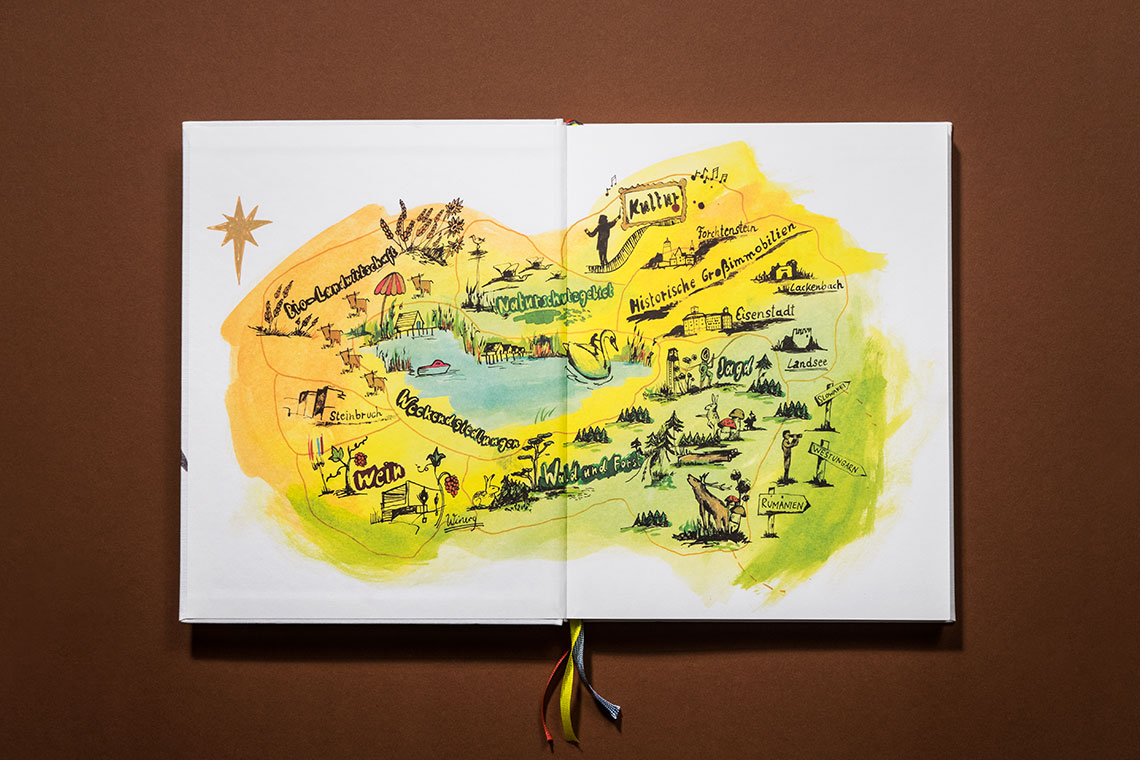 Kultur
Forchtenstein
Historische Großimmobilien
Lackenbach
Eisenstadt
Landsee
Bio-Landwirtschaft
Naturschutzgebiet
Jagd
Steinbruch
Weekendsiedlungen
SLOWAKEI
WESTUNGARN
Wein
Wald und Forst
RUMÄNIEN
Winery